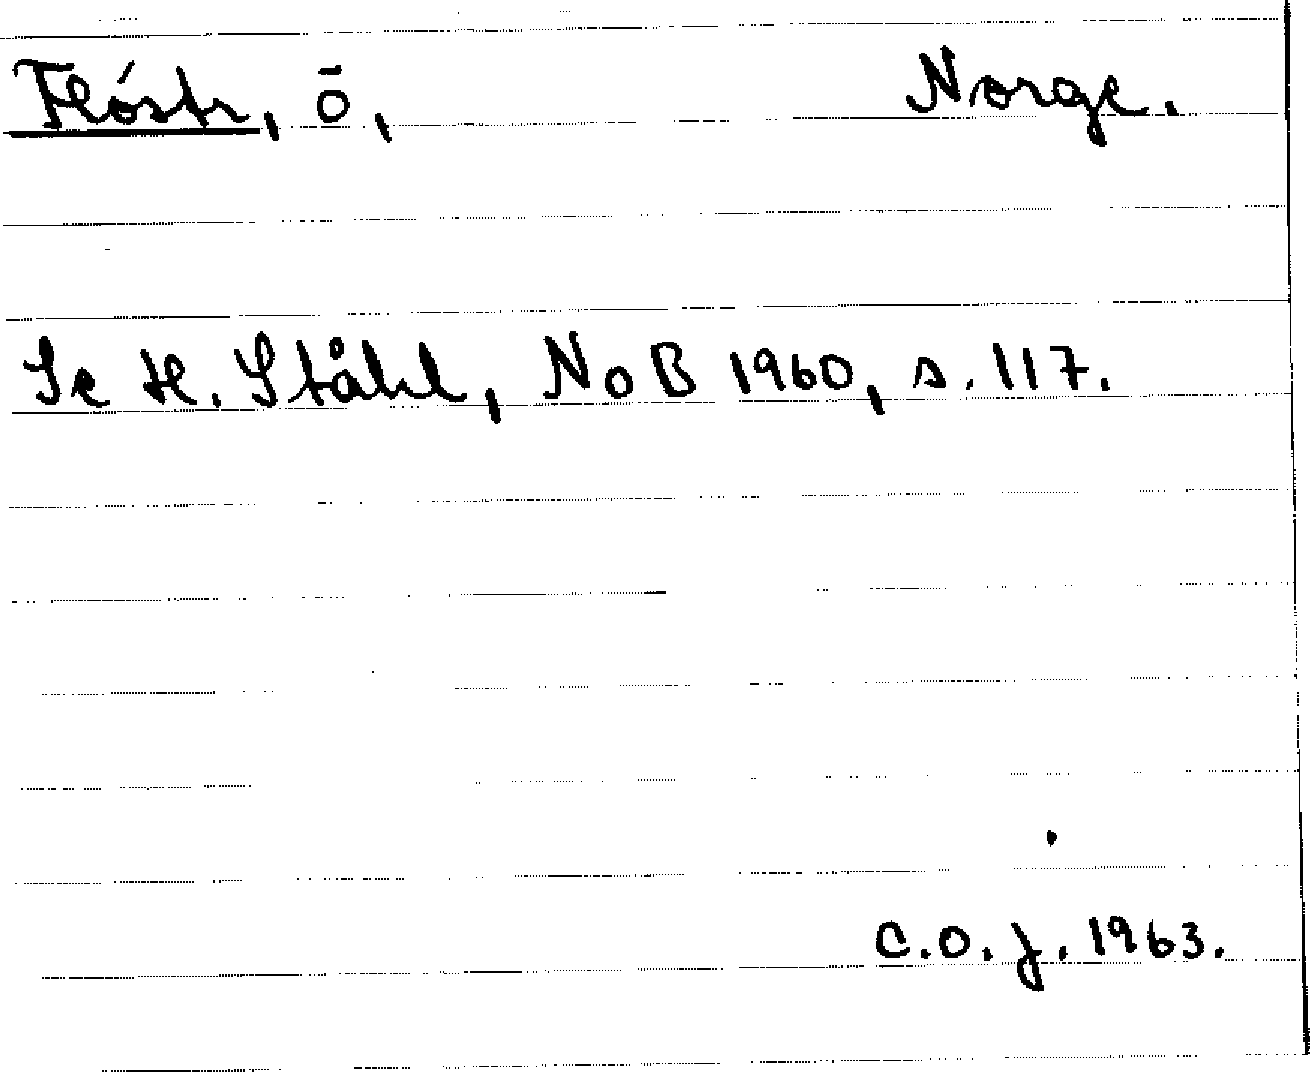 Flóstr, ō, Norge.
Se H. Ståhl, NoB 1960, s. 117.
C.O.J. 1963.